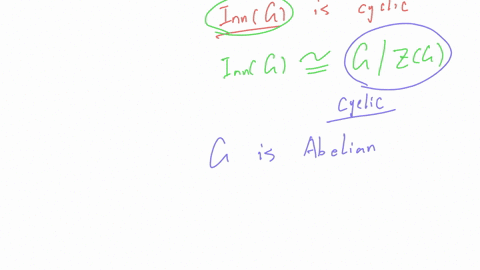 Inn(G) is cyclic
Inn(G) ≅ G/Z(G)
cyclic
G is Abelian